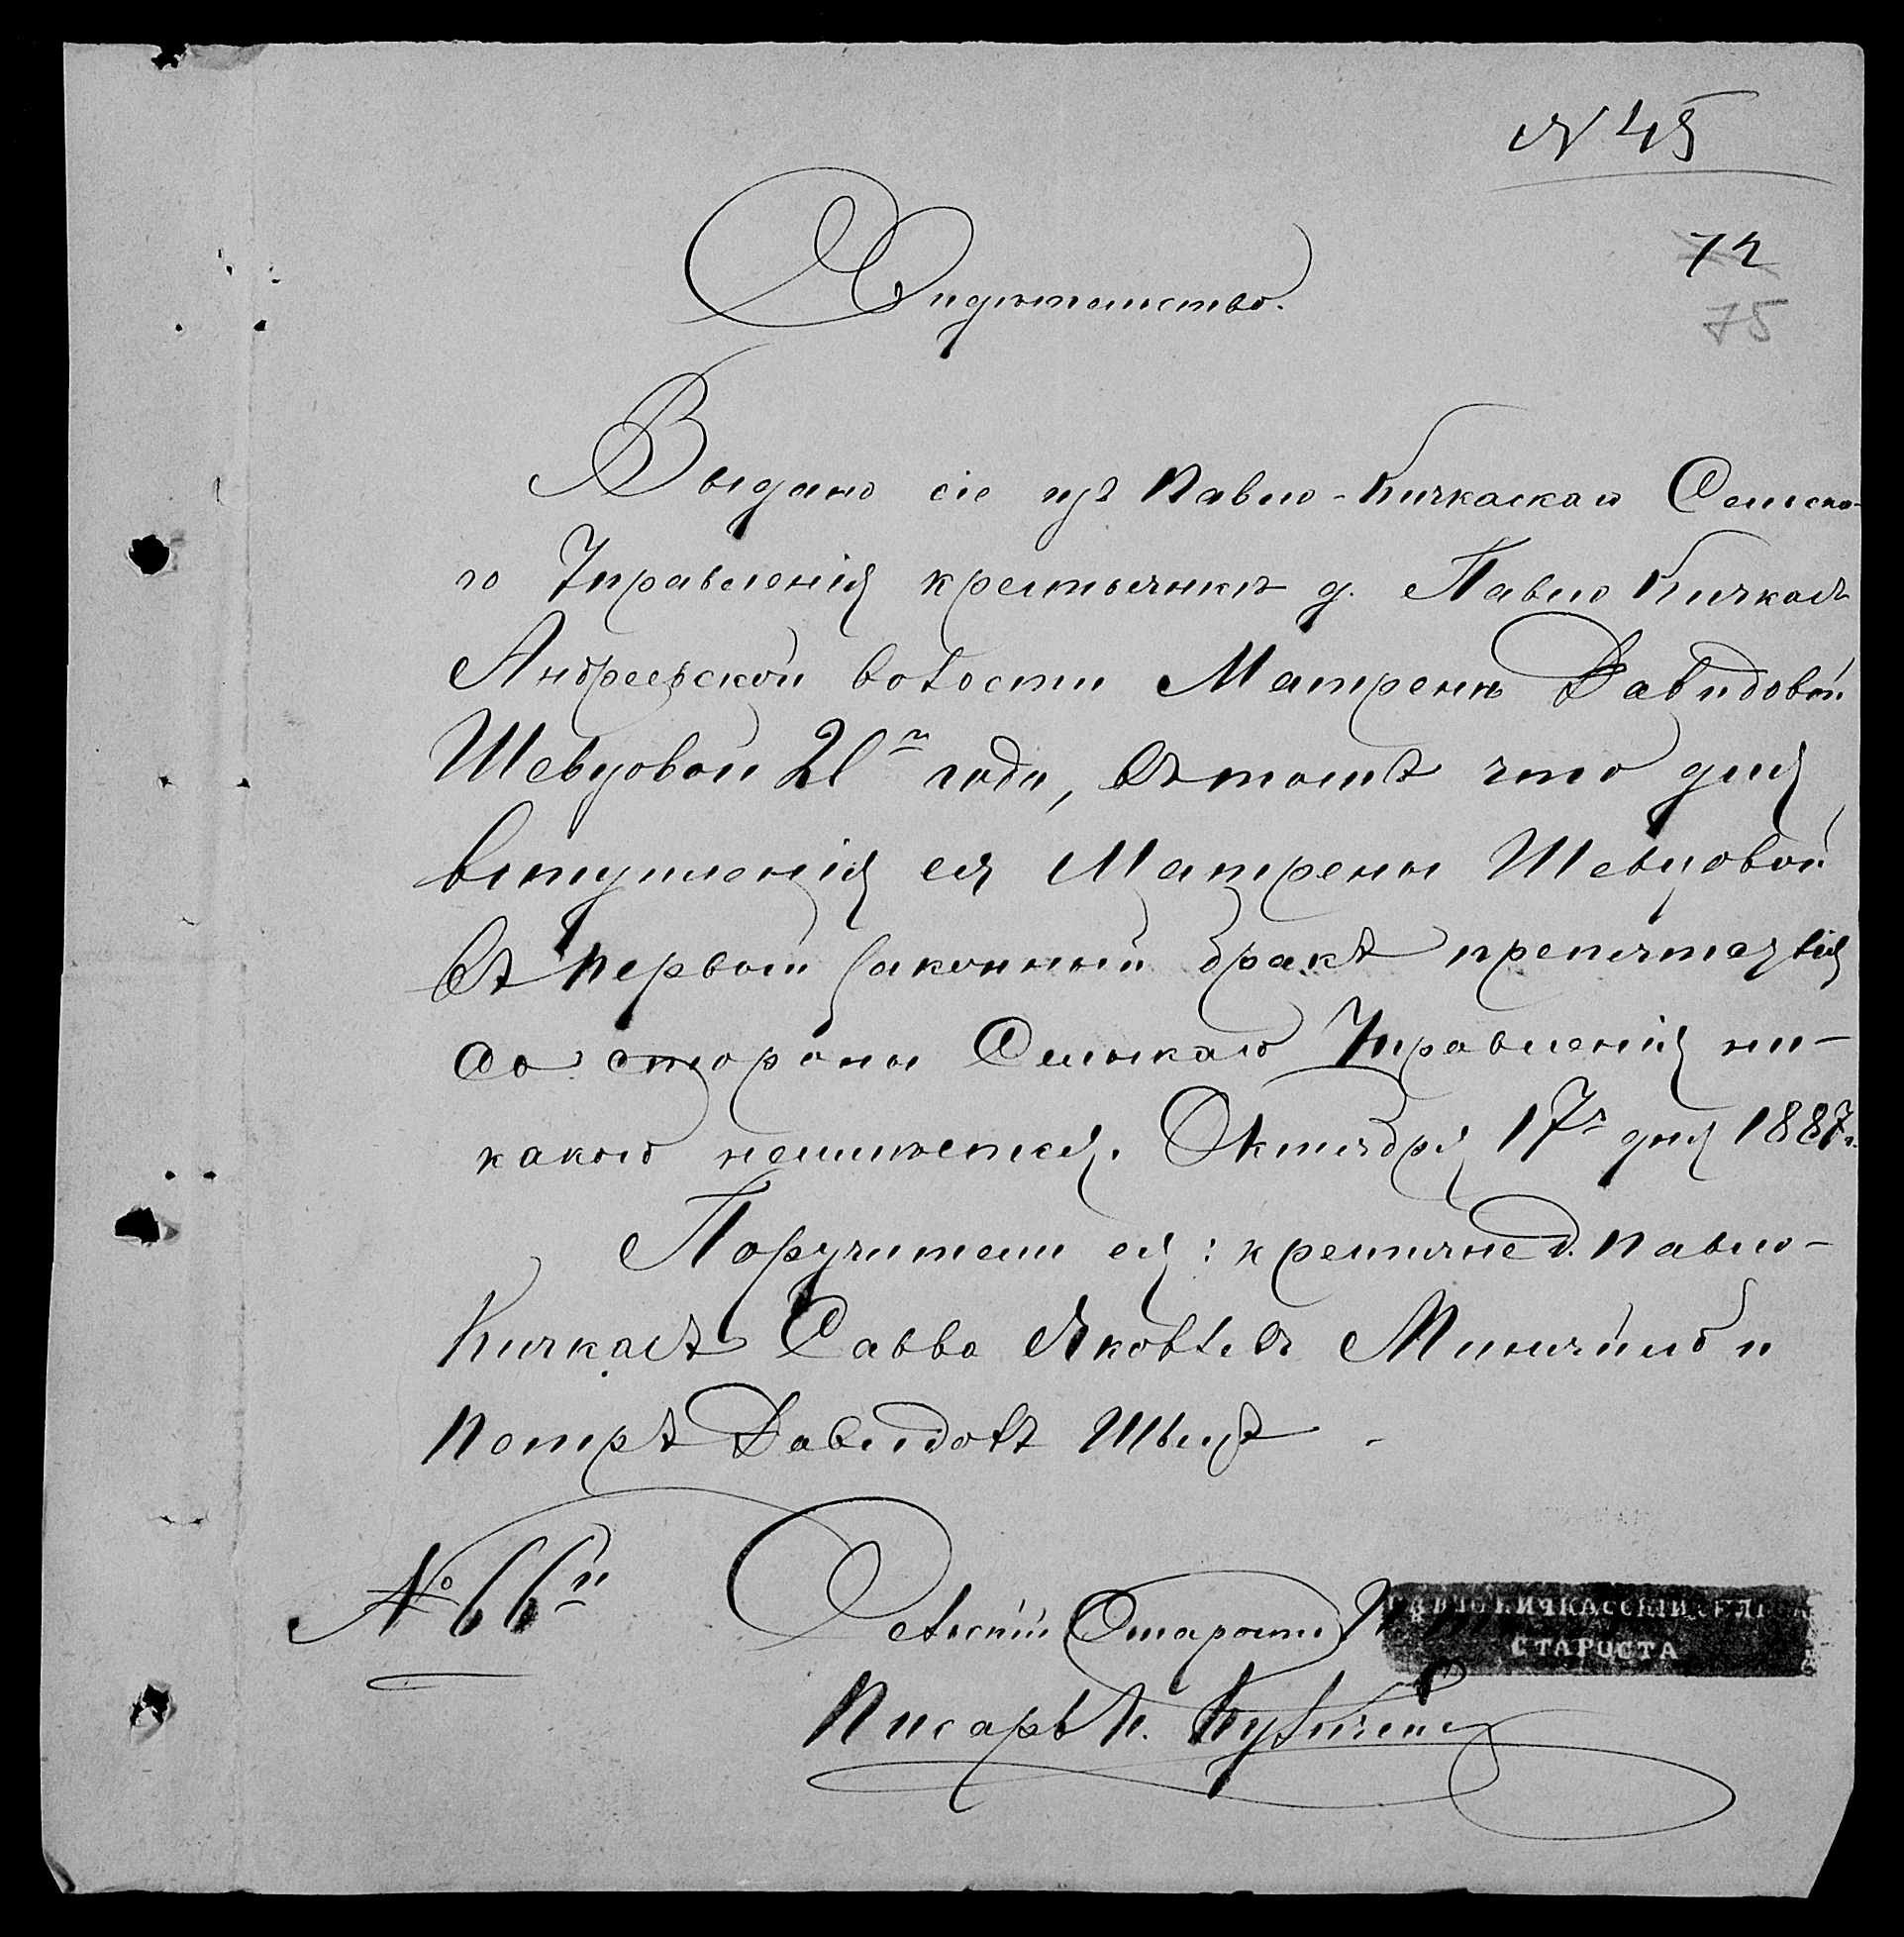 № 45
72
75
Свидѣтельство.
Выдано сіе изъ Павло-Кичкаскаго Сельска-
го Управленія крестьянкѣ д. Павло Кичкасъ
Андреевской волости Матренѣ Давидовой
Шевцовой 21го года, въ томъ что для
вступленія ея Матрены Шевцовой
въ первый законный бракъ препятствія
со стороны Сельскаго Управленія ни-
какого неимѣется. Октября 17го дня 1887г.
Поручители ея: крестьяне д. Павло-
Кичкасъ Савва Яковлевъ и
Петръ Давидовъ Швецъ
№ 66й
Сельскій Староста
ПАВЛО КИЧКАССКІЙ СЕЛЬСКІЙ
СТАРОСТА
Писарь П.